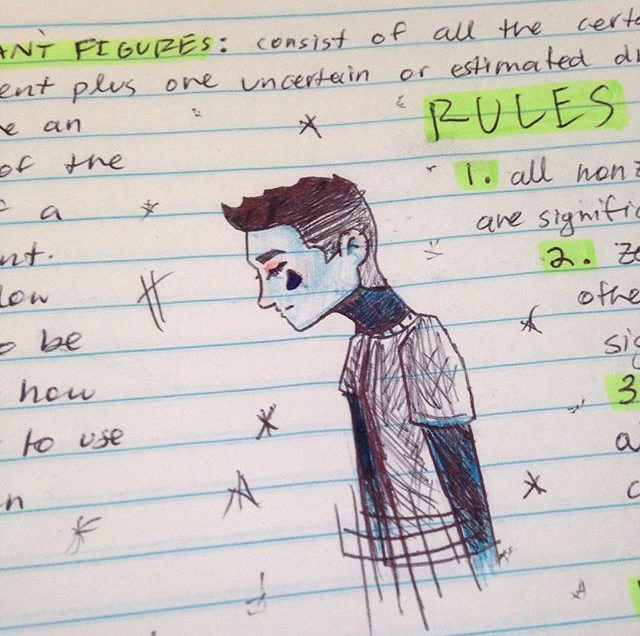 ANT FIGURES: consist of all the certa
ent plus one uncertain or estimated di
e an
of the
a
nt.
low
be
how
to use
n
RULES
1. all nonz
are signific
2. Ze
othe
sig
3
a
c